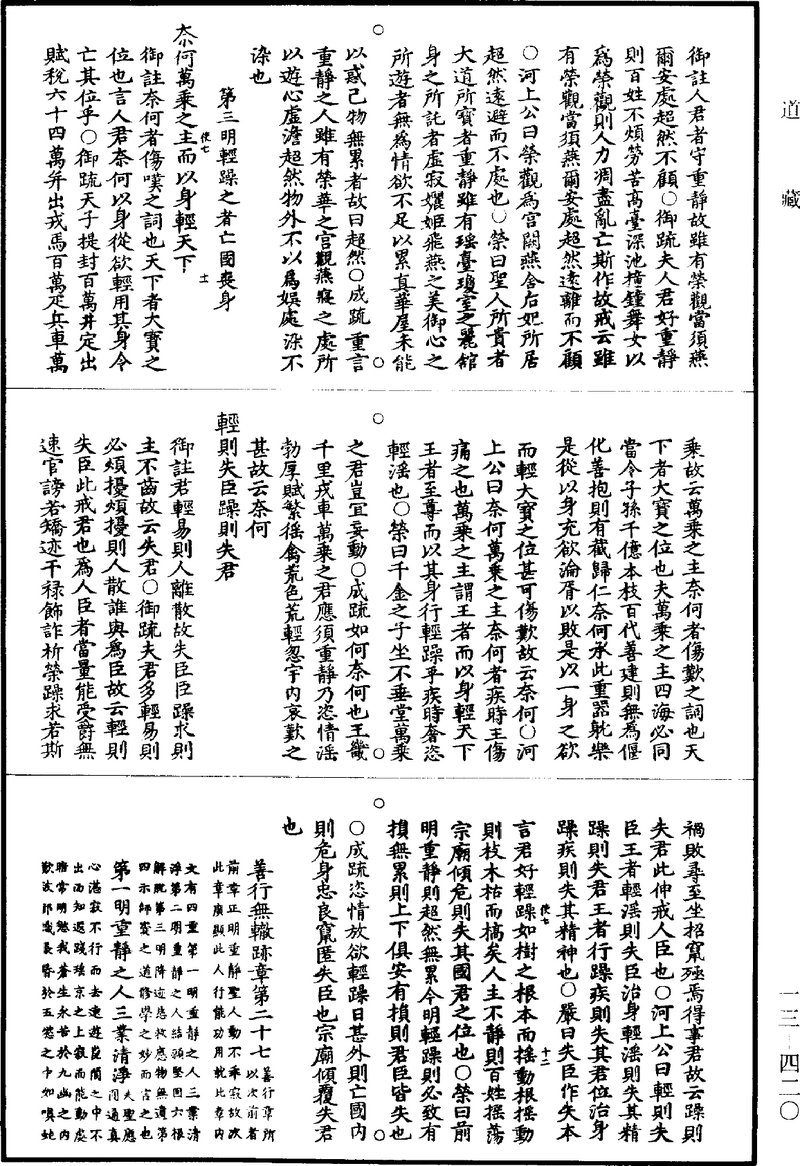 道藏
御註人君者守重靜故雖有榮觀當須燕
爾安處超然不顧○御疏夫人君好重靜
則百姓不煩勞苦高臺深池撞鐘舞女以
為榮觀則人力凋盡亂亡斯作故戒云雖
有榮觀當須燕爾安處超然遠離而不顧
○河上公曰榮觀為宮闕燕舍后妃所居
超然遠避而不處也○榮曰聖人所貴者
大道所寶者重靜雖有瑤臺瓊室之麗館
身之所託者虛寂孋姬飛燕之美御心之
所遊者無為情欲不足以累真華屋未能
以惑己物無累者故曰超然○成疏重言
重靜之人雖有榮華之宮觀燕寢之處所
以遊心虛澹超然物外不以為娛處深不
染也
第三明輕躁之者亡國喪身
奈何萬乘之主而以身輕天下
使七 十一
御註奈何者傷嘆之詞也天下者大寶之
位也言人君奈何以身從欲輕用其身令
亡其位乎○御疏天子提封百萬井定出
賦稅六十四萬井出戎馬百萬疋兵車萬
乘故云萬乘之主奈何者傷歎之詞也天
下者大寶之位也夫萬乘之主四海必同
當令子孫千億本枝百代善建則無為偃
化善抱則有截歸仁奈何承此重器躭樂
是從以身充欲淪胥以敗是以一身之欲
而輕大寶之位甚可傷歎故云奈何○河
上公曰奈何萬乘之主奈何者疾時王傷
痛之也萬乘之主謂王者而以身輕天下
王者至尊而以其身行輕躁乎疾時奢恣
輕滛也○榮曰千金之子坐不垂堂萬乘
之君豈宜妄動○成疏如何奈何也王畿
千里戎車萬乘之君應須重靜乃恣情滛
勃厚賦繁徭禽荒色荒輕忽宇內哀歎之
甚故云奈何
輕則失臣躁則失君
御註君輕易則人離散故失臣臣躁求則
主不齒故云失君○御疏夫君多輕易則
必煩擾煩擾則人散誰與為臣故云輕則
失臣此戒君也為人臣者當量能受爵無
速官謗若矯迹干祿飾詐祈榮躁求若斯
禍敗尋至坐招竄殛焉得事君故云躁則
失君此伸戒人臣也○河上公曰輕則失
臣王者輕滛則失臣治身輕滛則失其精
躁則失君王者行躁疾則失其君位治身
躁疾則失其精神也○嚴曰失臣作失本
使七 十二
言君好輕躁如樹之根本而搖動根搖動
則枝本枯而槁矣人主不靜則百姓搖蕩
宗廟傾危則失其國君之位也○榮曰前
明重靜則超然無累今明輕躁則必致有
損無累則上下俱安有損則君臣皆失也
○成疏恣情放欲輕躁日甚外則亡國內
則危身忠良竄匿失臣也宗廟傾覆失君
也
善行無轍跡章第二十七 善行章所以次前者
前章正明重靜聖人動不乖寂故次
此章廣顯此人行能功用就此章內
文有四重第一明重靜之人三業清
淨第二明重靜之人結願堅固六根
解脫第三明降迹慈救應物無遺第
四示師資之道修學之妙而言之也
第一明重靜之人三業清淨 夫聖應閻通真
心湛寂不行而去遠遊
出而知
一三－四二〇